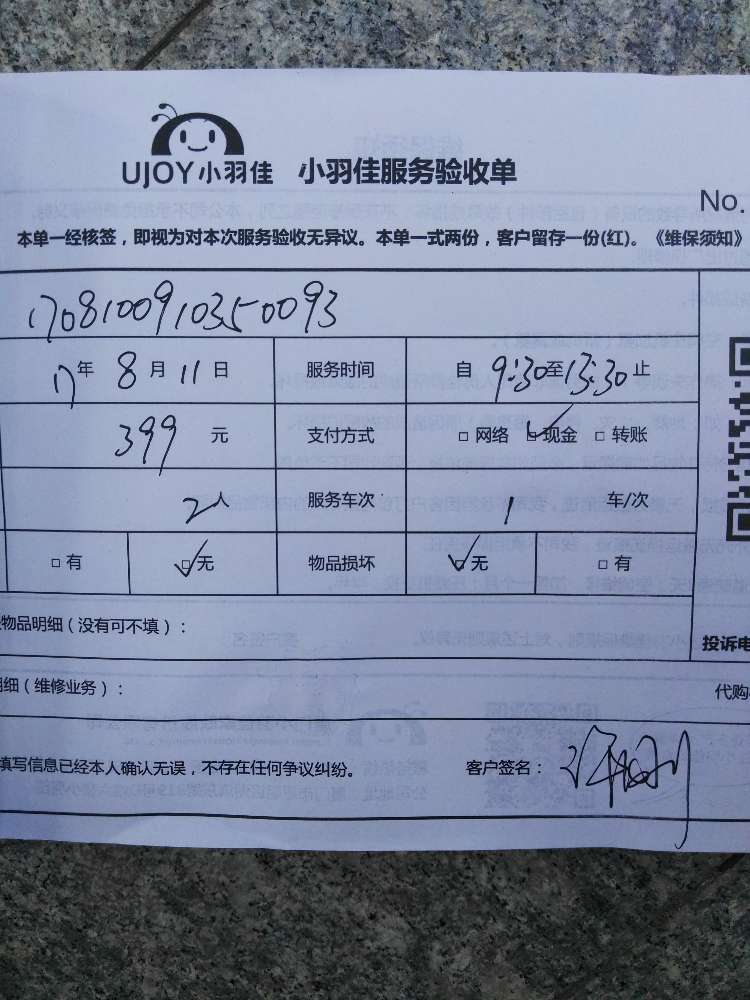 UJOY小羽佳 小羽佳服务验收单
No.
本单一经核签，即视为对本次服务验收无异议。本单一式两份，客户留存一份(红)。《维保须知》
170810091035 0093
17年 8月 11日 服务时间 自 9:30至13:30止
399 元 支付方式 □ 网络 □ 现金 □ 转账
2人 服务车次 1 车/次
□ 有 □ 无 物品损坏 □ 无 □ 有
物品明细（没有可不填）：
投诉电
细（维修业务）：
代购
填写信息已经本人确认无误，不存在任何争议纠纷。 客户签名：